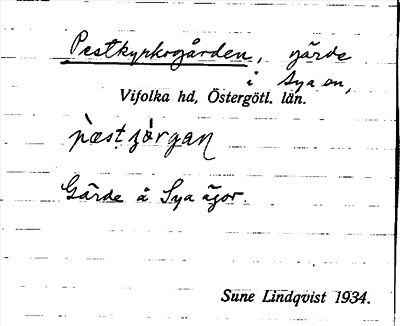 Pestkyrkogården, gärde
i Sya sn,
Vifolka hd, Östergötl. län.
Gärde å Sya ägor.
Sune Lindqvist 1934.